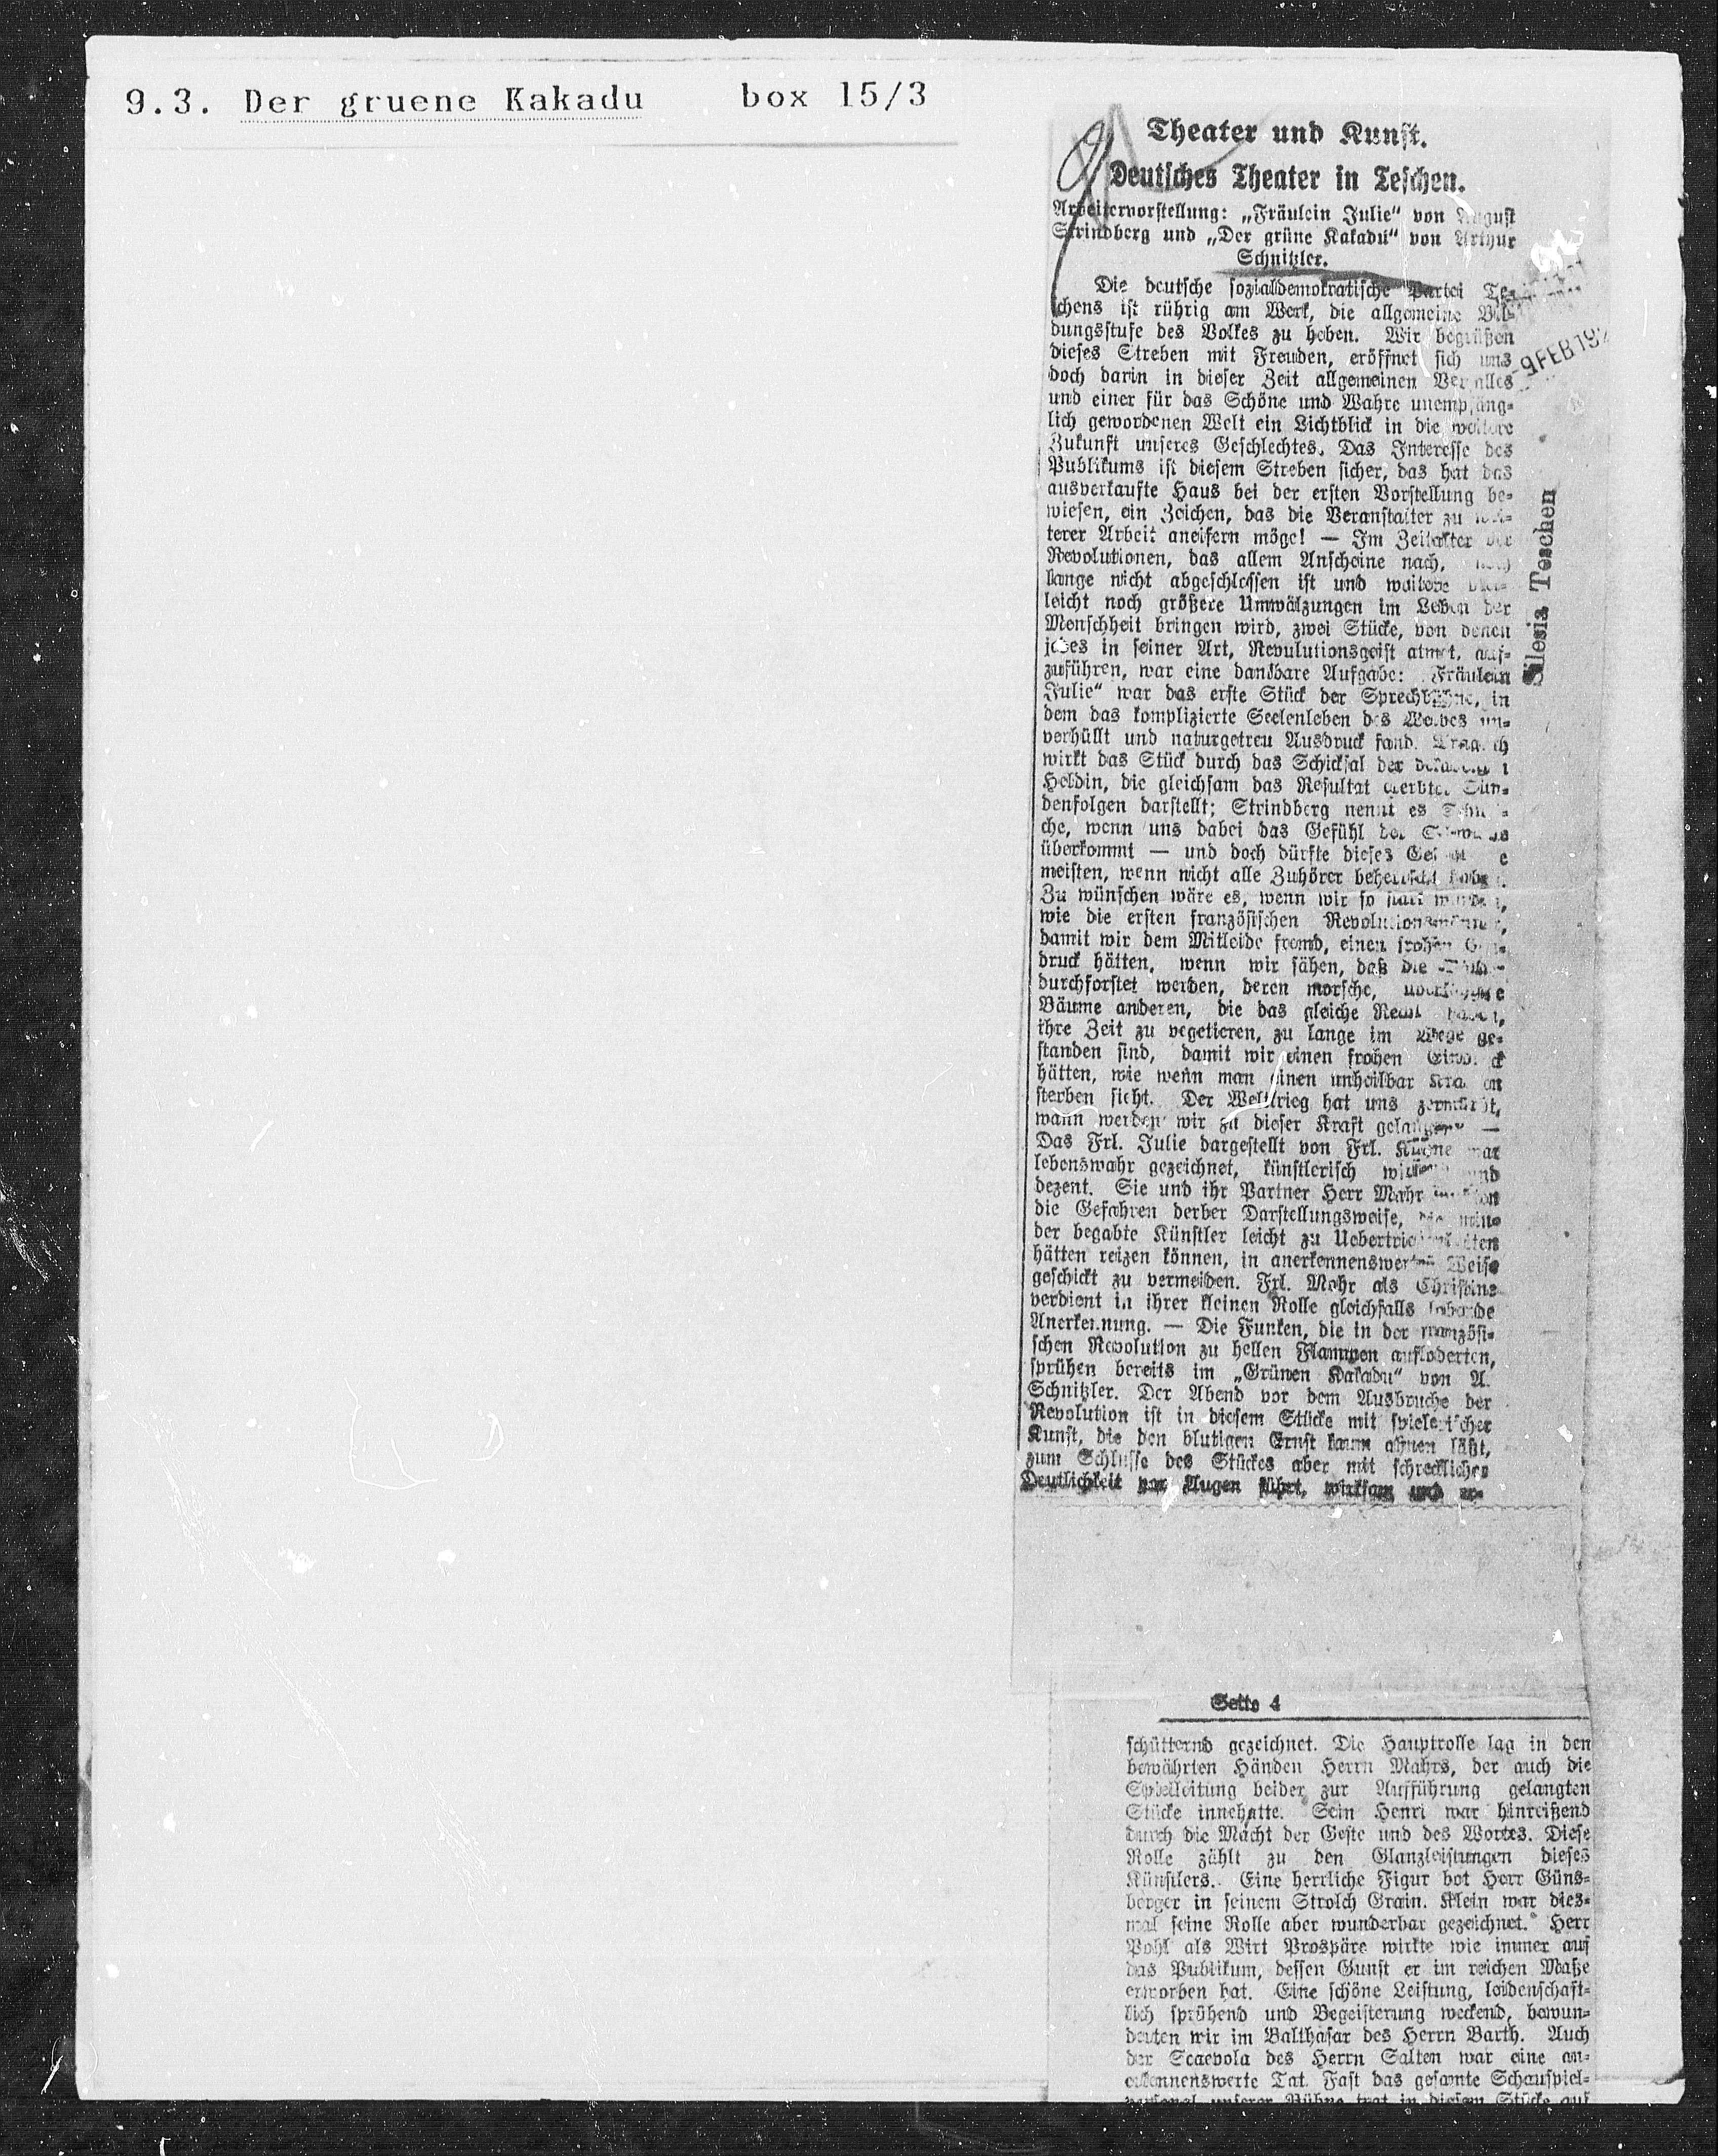 9.3. Der gruene Kakadu box 15/3
Theater und Kunst.
Deutsches Theater in Teschen.
Arbeitervorstellung: „Fräulein Julie“ von August
Strindberg und „Der grüne Kakadu“ von Arthur
Schnitzler.
Die deutsche sozialdemokratische Partei Te-
schens ist rührig am Werk, die allgemeine Bil-
dungsstufe des Volkes zu heben. Wir begrüßen
dieses Streben mit Freuden, eröffnet sich uns
doch darin in dieser Zeit allgemeinen Verfalles
und einer für das Schöne und Wahre unempfäng-
lich gewordenen Welt ein Lichtblick in die weitere
Zukunft unseres Geschlechtes. Das Interesse des
Publikums ist diesem Streben sicher, das hat das
ausverkaufte Haus bei der ersten Vorstellung be-
wiesen, ein Zeichen, das die Veranstalter zu wei-
terer Arbeit aneifern möge! — Im Zeitalter der
Revolutionen, das allem Anscheine nach, noch
lange nicht abgeschlossen ist und weitere viel-
leicht noch größere Umwälzungen im Leben der
Menschheit bringen wird, zwei Stücke, von denen
jedes in seiner Art, Revulutionsgeist atmet, auf-
zuführen, war eine dankbare Aufgabe: Fräulein
Julie“ war das erste Stück der Sprechbühne, in
dem das komplizierte Seelenleben des Weibes un-
verhüllt und naturgetreu Ausdruck fand. Tragisch
wirkt das Stück durch das Schicksal der
Heldin, die gleichsam das Resultat ererbter Sün-
denfolgen darstellt; Strindberg nennt es Schwä-
che, wenn uns dabei das Gefühl des
überkommt — und doch dürfte dieses Gefühl
meisten, wenn nicht alle Zuhörer beherrscht haben.
Zu wünschen wäre es, wenn wir so stark würden,
wie die ersten französischen Revolutionsmänner,
damit wir dem Mitleide fremd, einen frohen Ein-
druck hätten, wenn wir sähen, daß die
durchforstet werden, deren morsche, überständige
Bäume anderen, die das gleiche Recht haben,
ihre Zeit zu vegetieren, zu lange im Wege ge-
standen sind, damit wir einen frohen Eindruck
hätten, wie wenn man einen unheilbar Kranken
sterben sieht. Der Weltkrieg hat uns zermürbt,
wann werden wir zu dieser Kraft gelangen? —
Das Frl. Julie dargestellt von Frl. war
lebenswahr gezeichnet, künstlerisch wirkend und
dezent. Sie und ihr Partner Herr Mahr
die Gefahren derber Darstellungsweise, die min-
der begabte Künstler leicht zu Uebertriebenheiten
hätten reizen können, in anerkennenswerter Weise
geschickt zu vermeiden. Frl. Mahr als Christine
verdient in ihrer kleinen Rolle gleichfalls lobende
Anerkennung. — Die Funken, die in der französi-
schen Revolution zu hellen Flammen aufloderten,
sprühen bereits im „Grünen Kakadu“ von A.
Schnitzler. Der Abend vor dem Ausbruche der
Revolution ist in diesem Stücke mit spielerischer
Kunst, die den blutigen Ernst kaum ahnen läßt,
zum Schlusse des Stückes aber mit schrecklicher
Deutlichkeit vor Augen führt, wirksam und er-
-9 FEB 192
Silesia Teschen
Seite 4
schütternd gezeichnet. Die Hauptrolle lag in den
bewährten Händen Herrn Mahrs, der auch die
Spielleitung beider zur Aufführung gelangten
Stücke innehatte. Sein Henri war hinreißend
durch die Macht der Geste und des Wortes. Diese
Rolle zählt zu den Glanzleistungen dieses
Künstlers. Eine herrliche Figur bot Herr Güns-
berger in seinem Strolch Grain. Klein war dies-
mal seine Rolle aber wunderbar gezeichnet. Herr
Pohl als Wirt Prospäre wirkte wie immer auf
das Publikum, dessen Gunst er im reichen Maße
erworben hat. Eine schöne Leistung, leidenschaft-
lich sprühend und Begeisterung weckend, bewun-
derten wir im Balthasar des Herrn Barth. Auch
der Scaevola des Herrn Salten war eine an-
erkennenswerte Tat. Fast das gesamte Schauspiel-
personal unserer Bühne trat in diesem Stücke auf